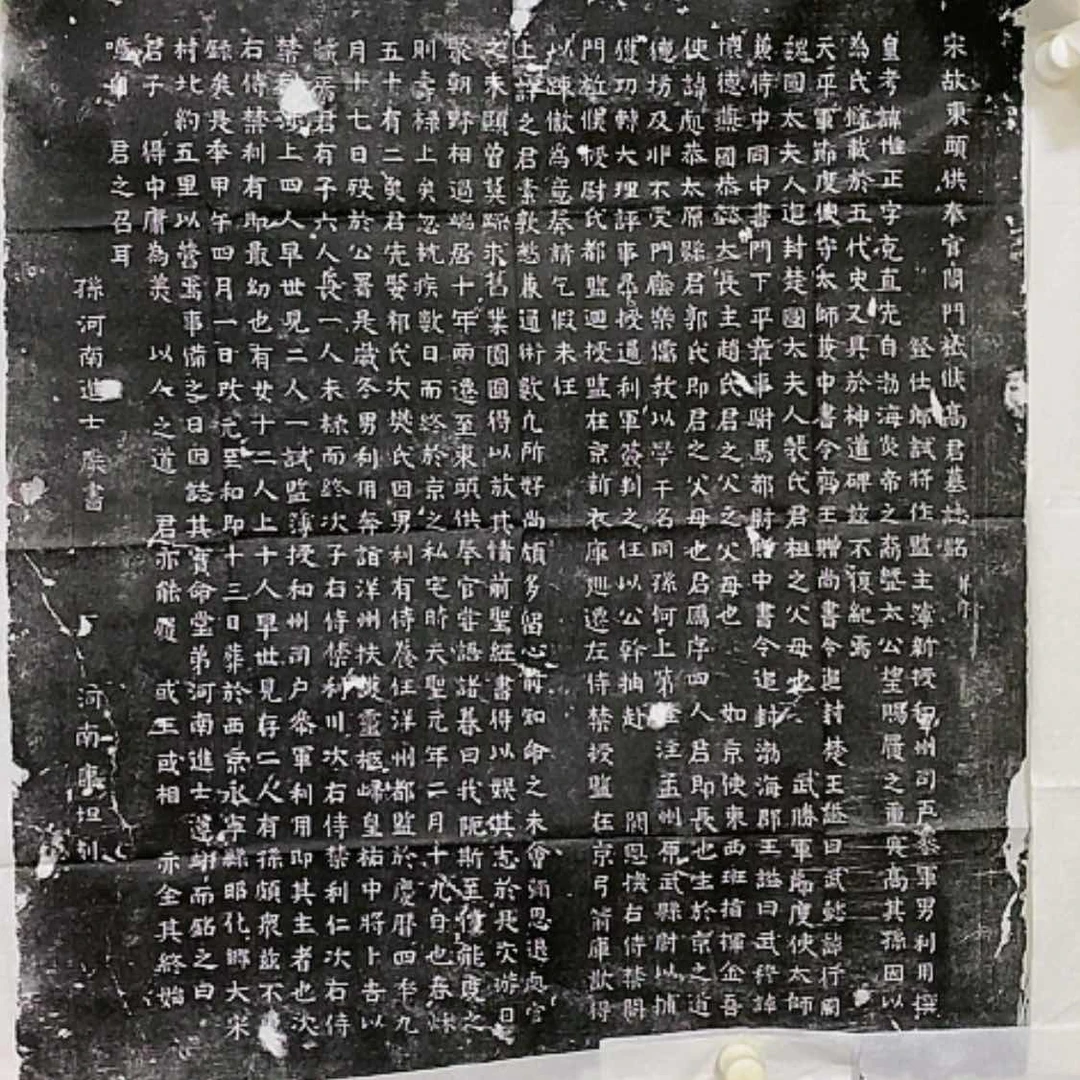 宋故東頭供奉官閤門祗候高君墓誌銘
登仕郎試將作監主簿新授和州司戶叅軍男利用撰
皇考諱惟正字克直先自渤海炎帝之裔暨太公望賜履之重奚高其孫因以
為氏餘載於五代史又具於神道碑兹不復紀焉
天平軍節度使守太師兼中書令齊王贈尚書令追封楚王諡曰武懿諱行周
國太夫人追封楚國太夫人裴氏君祖之父母也 武勝軍節度使太師
兼侍中同中書門下平章事駙馬都尉贈中書令追封渤海郡王諡曰武穆諱
懷德燕國恭懿大長主趙氏君之父之父母也 如京使東西班指揮金吾
使諱處恭太原縣君郭氏即君之父母也君鴈序四人君即長也生於京之道
德坊及卯不受門廕樂儒教以學干名同孫何上第 注孟州原武縣尉以捕
獲功轉大理評事尋授通利軍簽判之任以公幹抽赴 闕恩懷右侍禁閤
門祗候授尉氏都監迴授監在京新衣庫廵遷左侍禁授監在京弓箭庫歘得
以踈慠為意奏請乞假未任
上許之君素敦慤兼通術數凡所好尚頗多留心前知命之未會彌思退處官
之未頤曾莫踪求舊業園圃得以放其情前聖經書得以娛其志於是次游日
聚朝野相過端居十年兩遷至東頭供奉官甞語諸暮曰我既斯至僅能度之
則壽祿上矣忽枕疾數日而終於京之私宅時天聖元年二月十九日也春秋
五十有二矣君先娶祁氏次樊氏四男利有侍養任洋州都監於慶曆四年九
月十七日歿於公署是歲冬男利用奔詣洋州扶護靈柩歸皇祐中將卜吉以
焉君有子六人長一人未祿而終次子右侍禁利川次右侍禁利仁次右侍
禁 上四人早世見二人一試監簿授和州司户叅軍利用即其主者也次
右侍禁利有即最幼也有女十二人上十人早世見存二人有孫頗衆兹不
錄矣是年甲午四月一日改元至和即十三日葬於西京永寧縣昭化鄉大宋
村北約五里以塋焉事備之日因誌其實命堂弟河南進士遵 而銘之曰
君子 得中庸為美 以人之道 君亦能履 或王或相 亦全其終始
嗚 君之召耳
孫河南進士 書 河南 坦刊